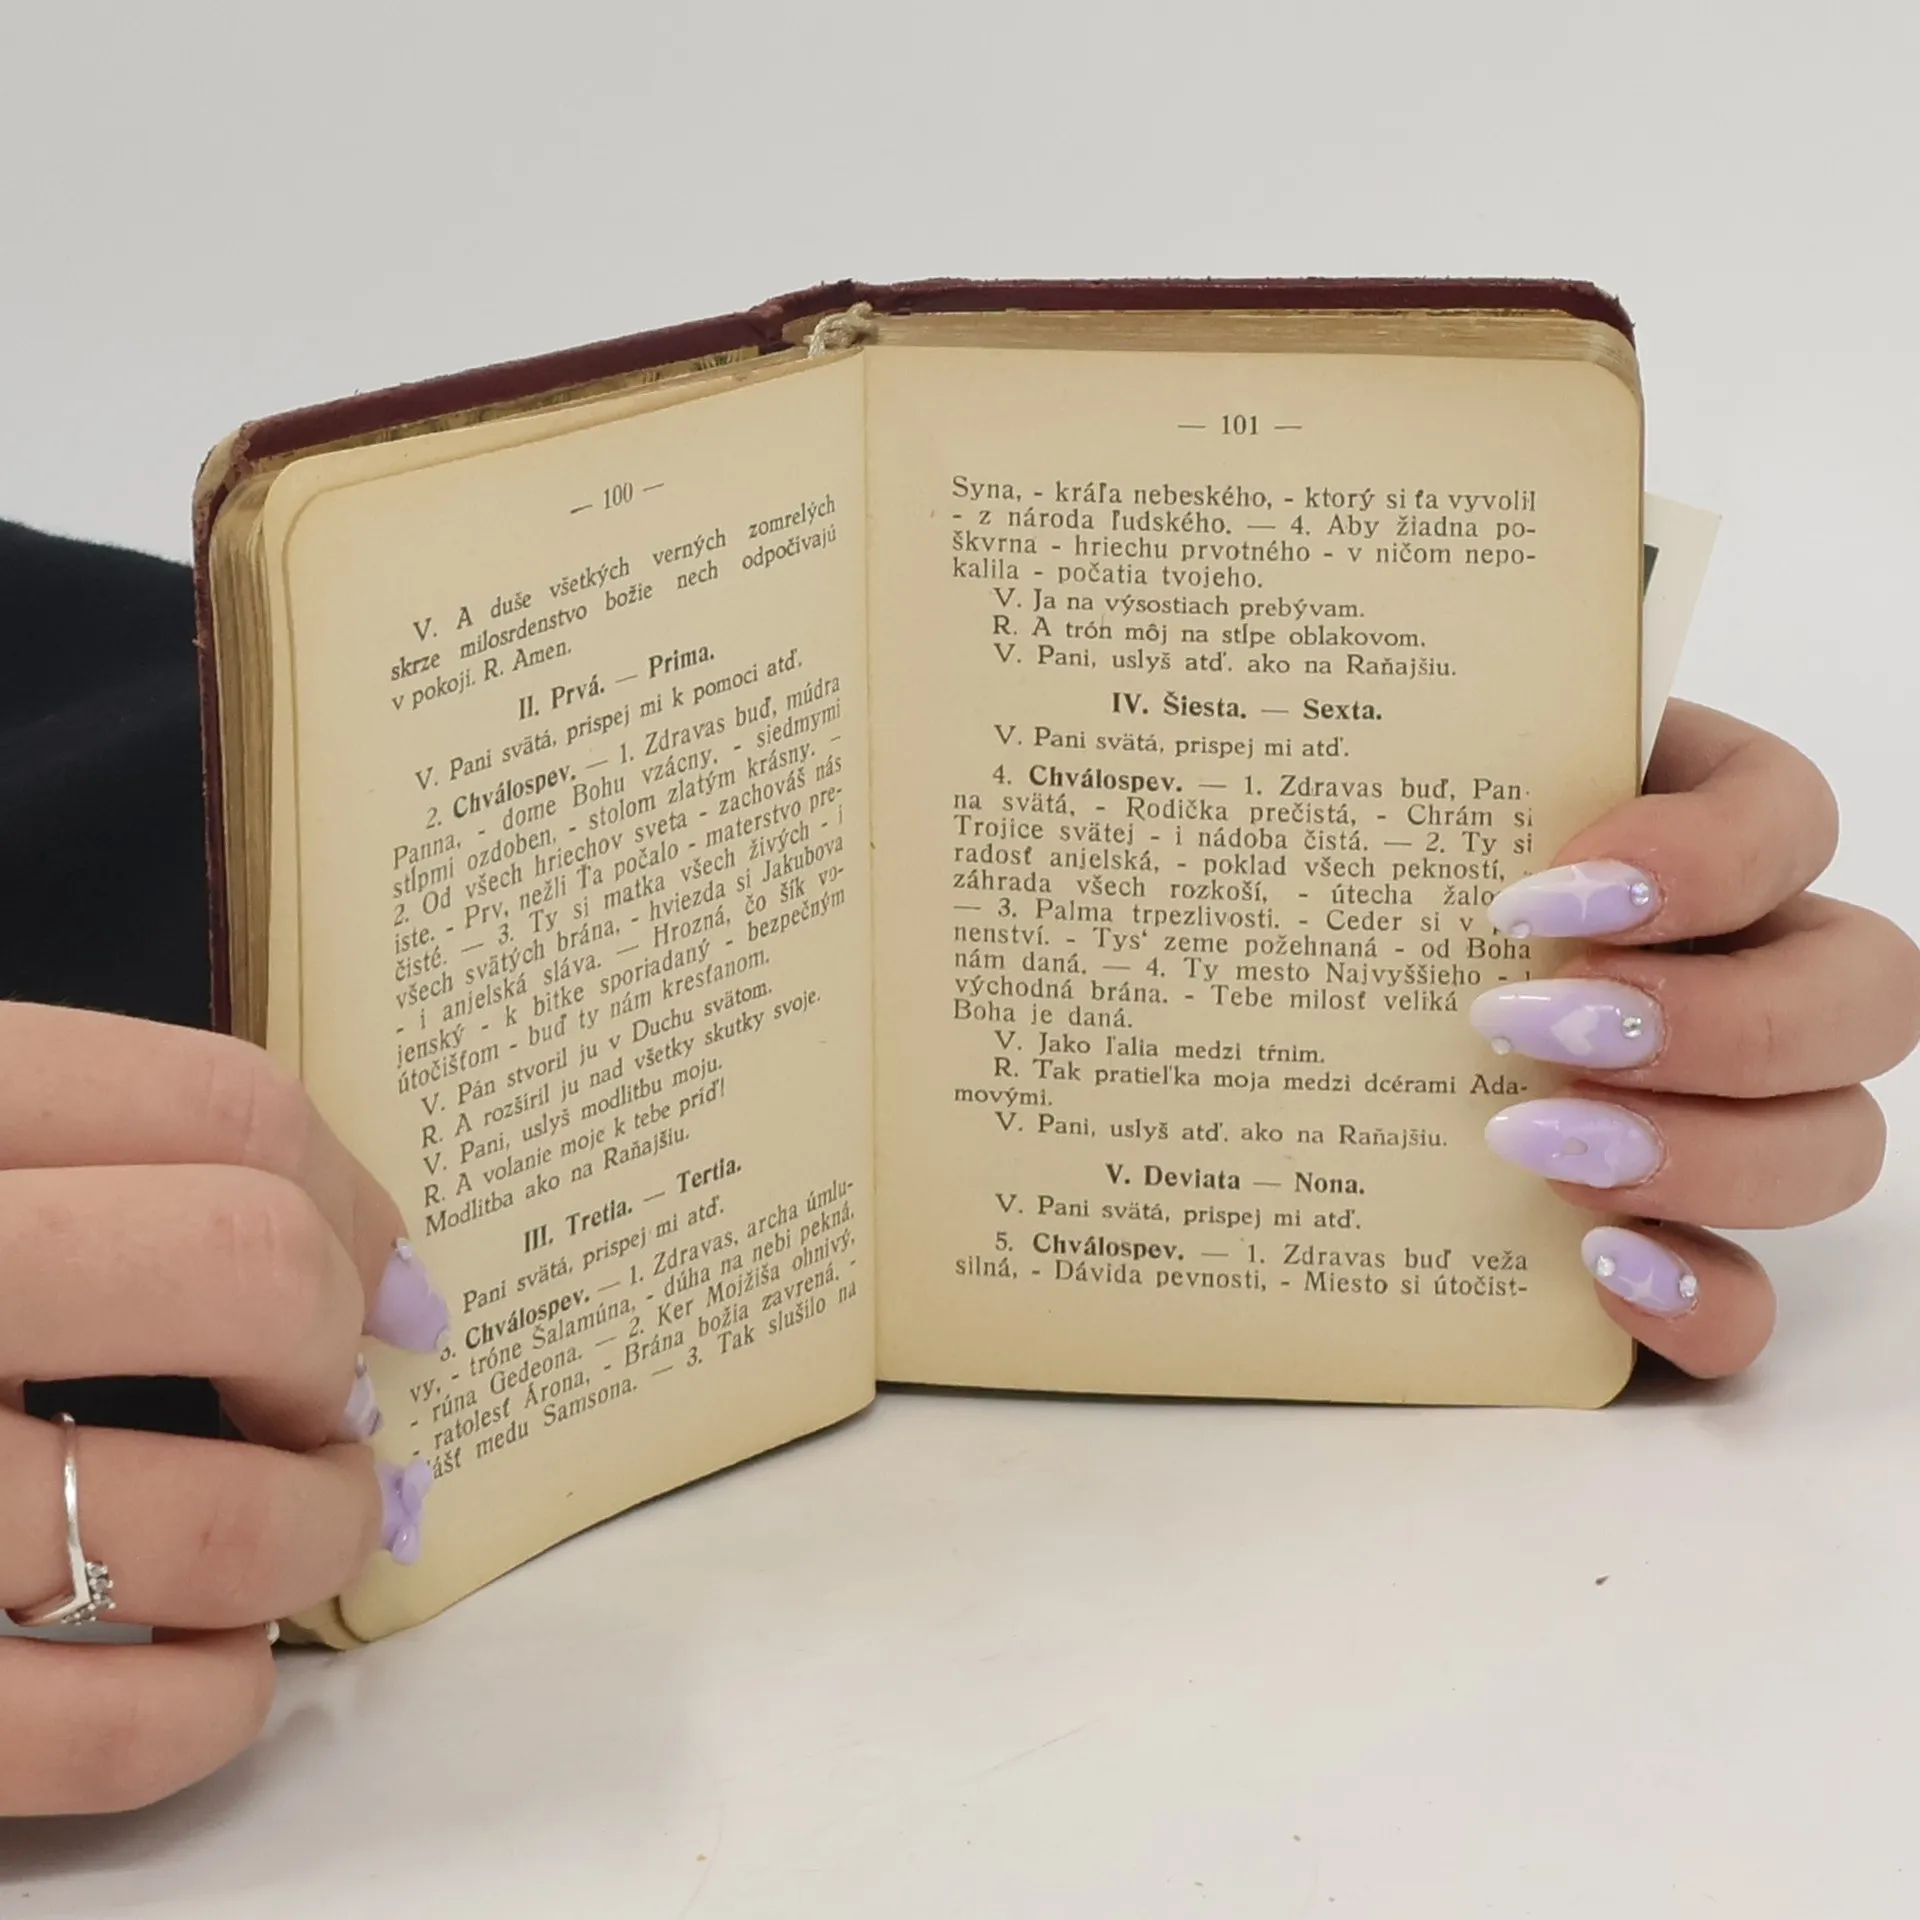 — 100 —
V. A duše všetkých verných zomrelých
skrze milosrdenstvo božie nech odpočívajú
v pokoji. R. Amen.
II. Prvá. — Prima.
V. Pani svätá, prispej mi k pomoci atď.
2. Chválospev. — 1. Zdravas buď, múdra
Panna, - dome Bohu vzácny, - siedmymi
stĺpmi ozdoben, - stolom zlatým krásny. -
2. Od všech hriechov sveta - zachováš nás
iste. - Prv, nežli Ťa počalo - materstvo pre-
čisté. — 3. Ty si matka všech živých - i
všech svätých brána, - hviezda si Jakubova
- i anjelská sláva. — Hrozná, čo šík vo-
jenský - k bitke sporiadaný - bezpečným
útočišťom - buď ty nám kresťanom.
V. Pán stvoril ju v Duchu svätom.
R. A rozšíril ju nad všetky skutky svoje.
V. Pani, uslyš modlitbu moju.
R. A volanie moje k tebe príď!
Modlitba ako na Raňajšiu.
III. Tretia. — Tertia.
Pani svätá, prispej mi atď.
3. Chválospev. — 1. Zdravas, archa úmlu-
vy, - tróne Šalamúna, - dúha na nebi pekná,
- rúna Gedeona. — 2. Ker Mojžiša ohnivý,
- ratolesť Árona, - Brána božia zavrená. -
medu Samsona. — 3. Tak slušilo na
— 101 —
Syna, - kráľa nebeského, - ktorý si ťa vyvolil
- z národa ľudského. — 4. Aby žiadna po-
škvrna - hriechu prvotného - v ničom nepo-
kalila - počatia tvojeho.
V. Ja na výsostiach prebývam.
R. A trón môj na stĺpe oblakovom.
V. Pani, uslyš atď. ako na Raňajšiu.
IV. Šiesta. — Sexta.
V. Pani svätá, prispej mi atď.
4. Chválospev. — 1. Zdravas buď, Pan-
na svätá, - Rodička prečistá, - Chrám si
Trojice svätej - i nádoba čistá. — 2. Ty si
radosť anjelská, - poklad všech pekností, -
záhrada všech rozkoší, - útecha
— 3. Palma trpezlivosti. - Ceder si v
nenství. - Tys‘ zeme požehnaná - od Boha
nám daná. — 4. Ty mesto Najvyššieho - i
východná brána. - Tebe milosť veliká
Boha je daná.
V. Jako ľalia medzi tŕnim.
R. Tak pratieľka moja medzi dcérami Ada-
movými.
V. Pani, uslyš atď. ako na Raňajšiu.
V. Deviata — Nona.
V. Pani svätá, prispej mi atď.
5. Chválospev. — 1. Zdravas buď veža
silná, - Dávida pevnosti, - Miesto si útočist-